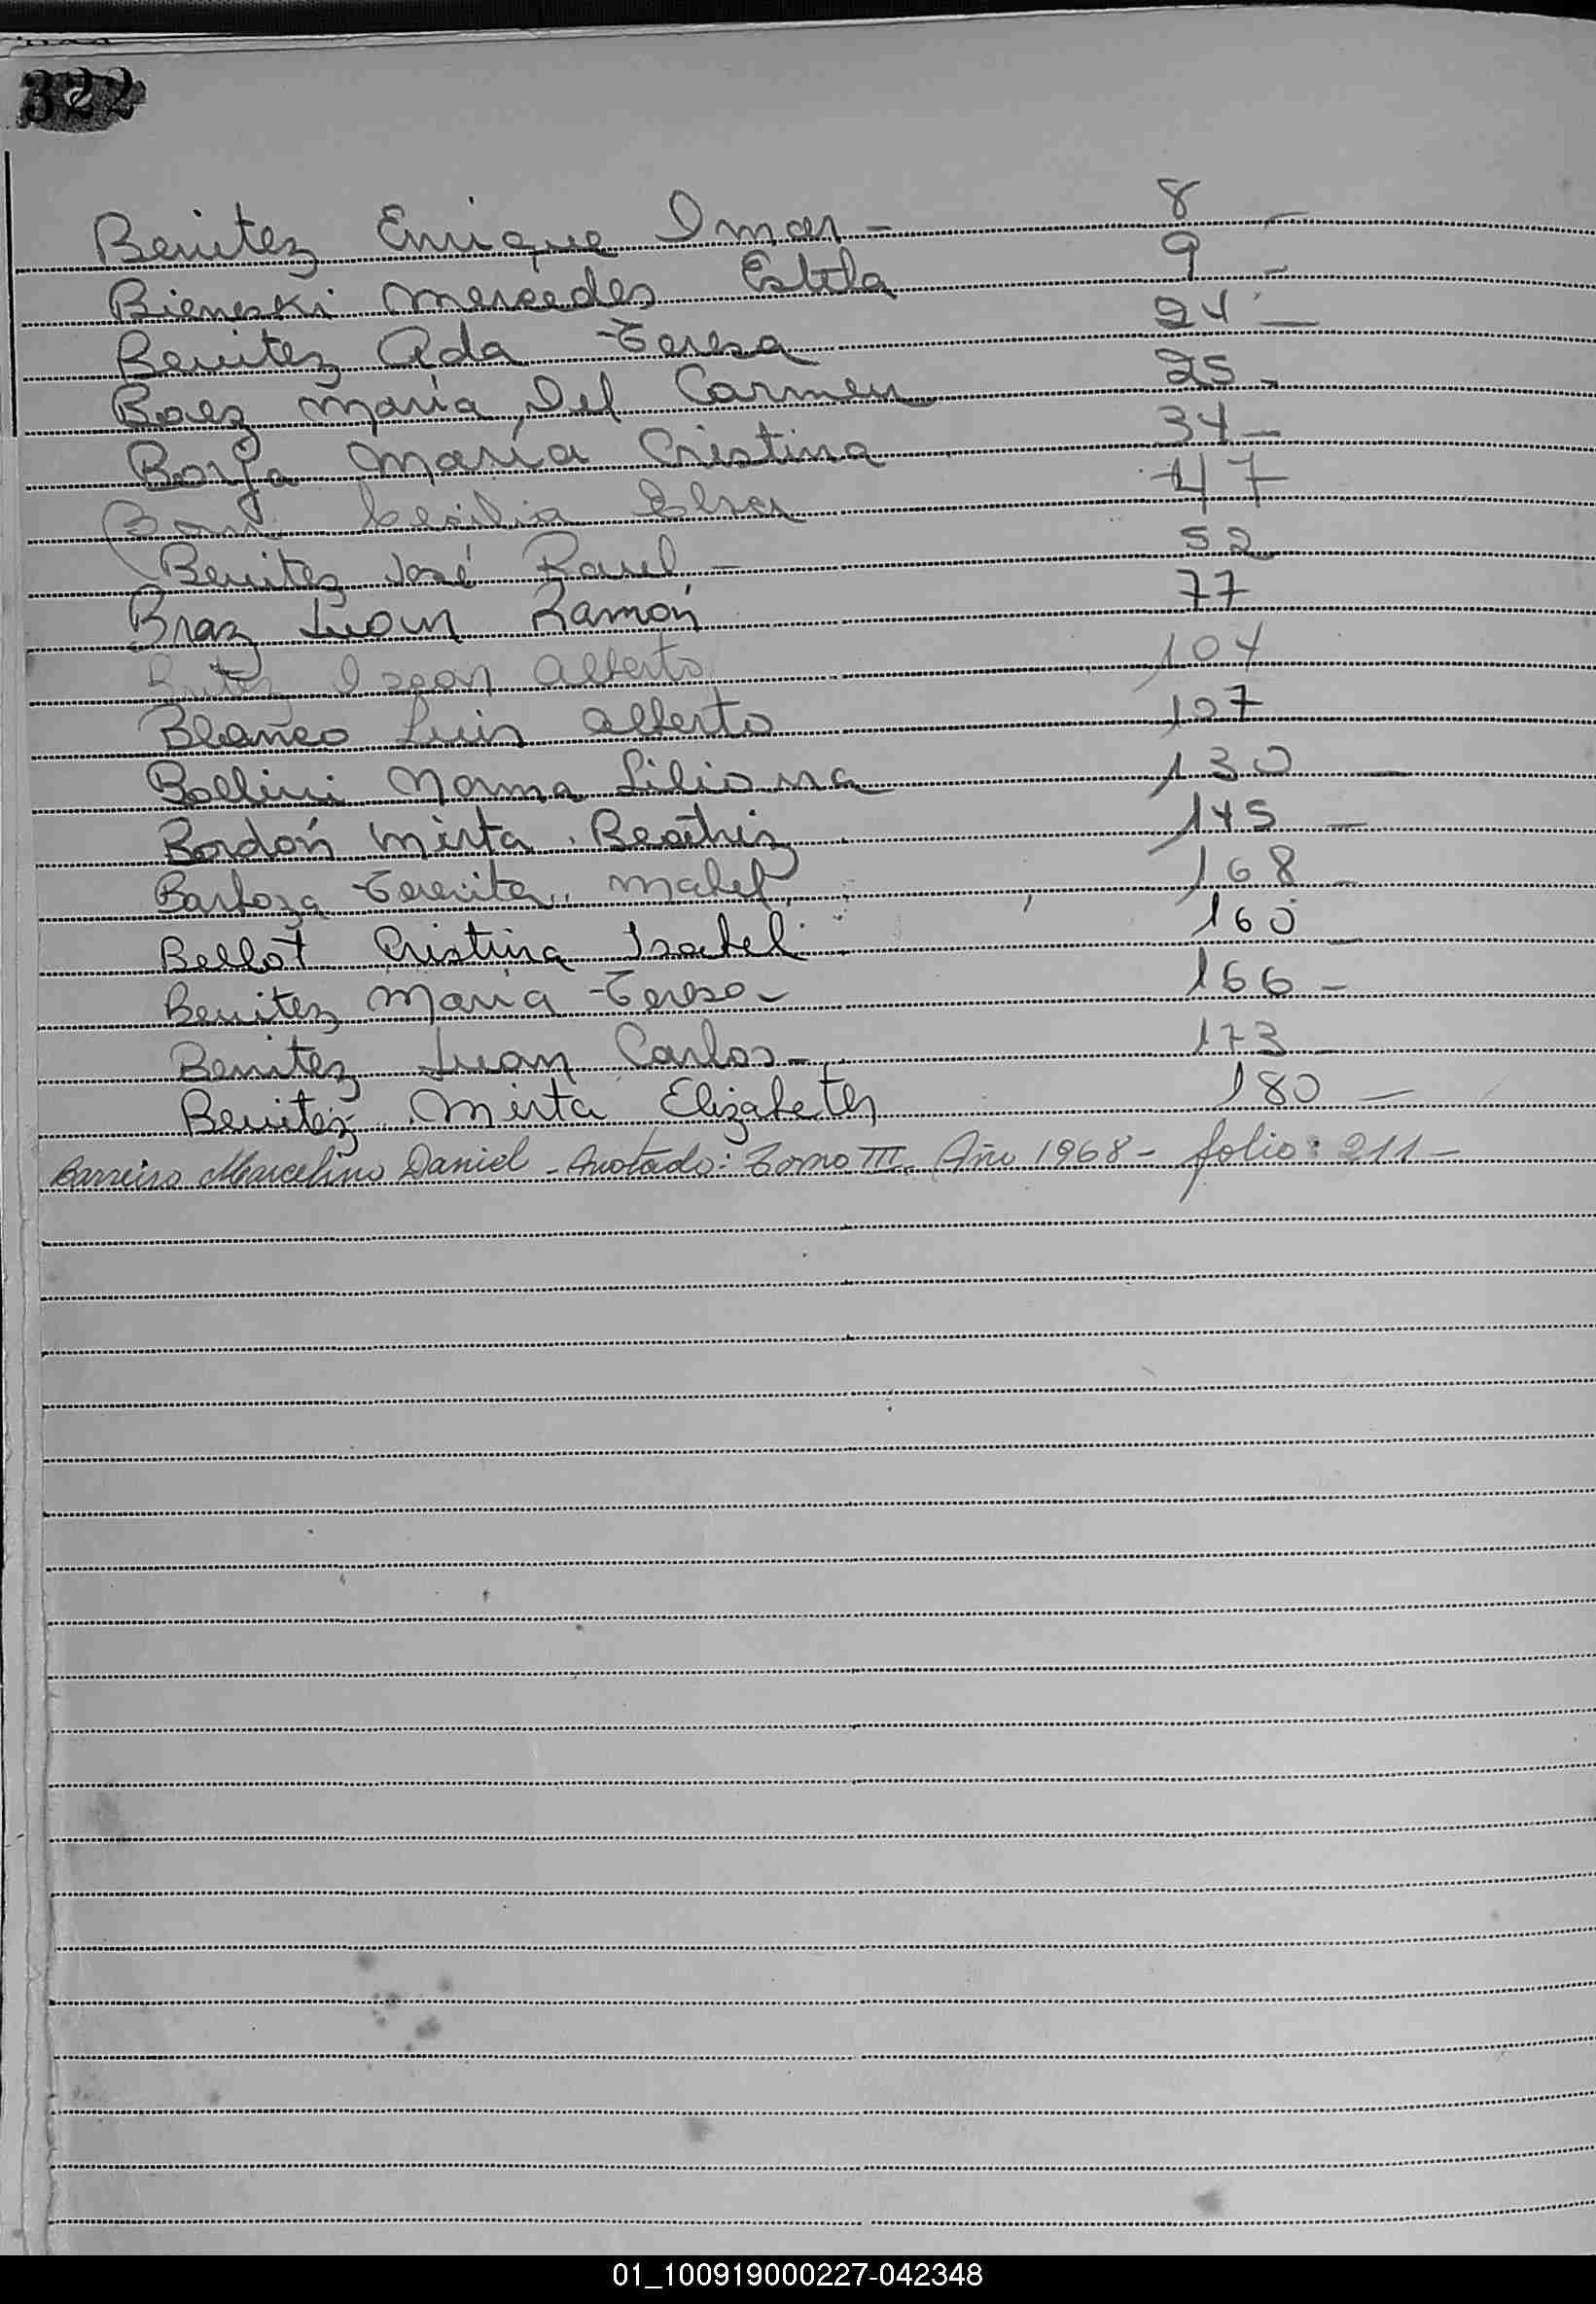 322
Benitez Enrique Omar - 8 -
Bieneski Mercedes Estela 9 -
Benitez Ada Teresa 24 -
Baez María Del Carmen 25 -
Borja María Cristina 34 -
Cecilia Elsa 47
Benitez José Raul - 52
Braz Juan Ramón 77
Alberto 104
Blanco Luis Alberto 107
Bollini Norma Liliana 130 -
Bordón Mirta Beatriz 145 -
Barboza Teresita Mabel 168 -
Bellot Cristina Isabel 160 -
Benitez María Teresa - 166 -
Benitez Juan Carlos - 173 -
Benitez Mirta Elizabeth 180 -
Barreiro Marcelino Daniel - Anotado: Tomo III. Año 1968 - folio: 211 -
01_100919000227-042348